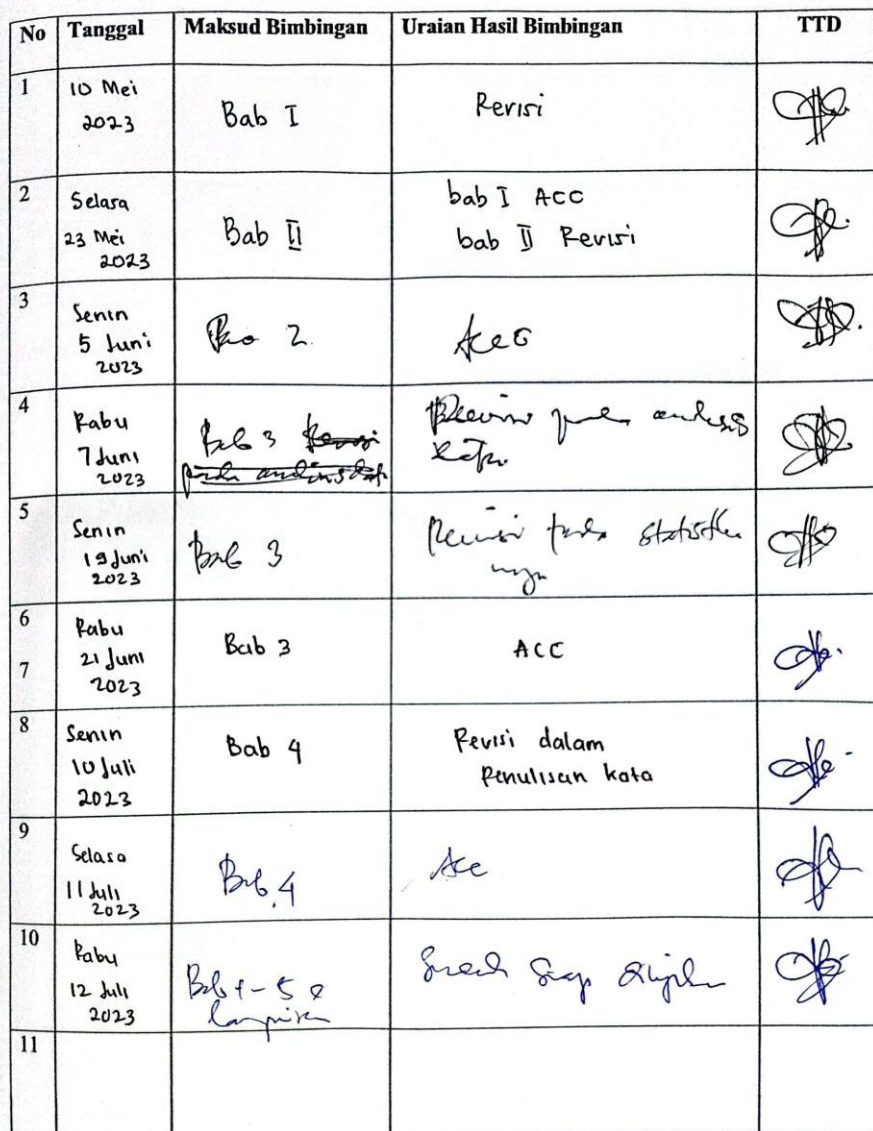 No Tanggal Maksud Bimbingan Uraian Hasil Bimbingan TTD
1 10 Mei
2023
Bab I
Revisi
2 Selasa
23 Mei
2023
Bab II
bab I ACC
bab II Revisi
3 Senin
5 Juni
2023
2
Acc
4 Rabu
7 Juni
2023
Bab 3
Revisi pada analisis
5 Senin
19 Juni
2023
Bab 3
Revisi pada statistik
nya
6 Rabu
7 21 Juni
2023
Bab 3
ACC
8 Senin
10 Juli
2023
Bab 4
Revisi dalam
Penulisan kata
9 Selasa
11 Juli
2023
Bab 4
Acc
10 Rabu
12 Juli
2023
Bab 1-5
lampiran
Siap
11